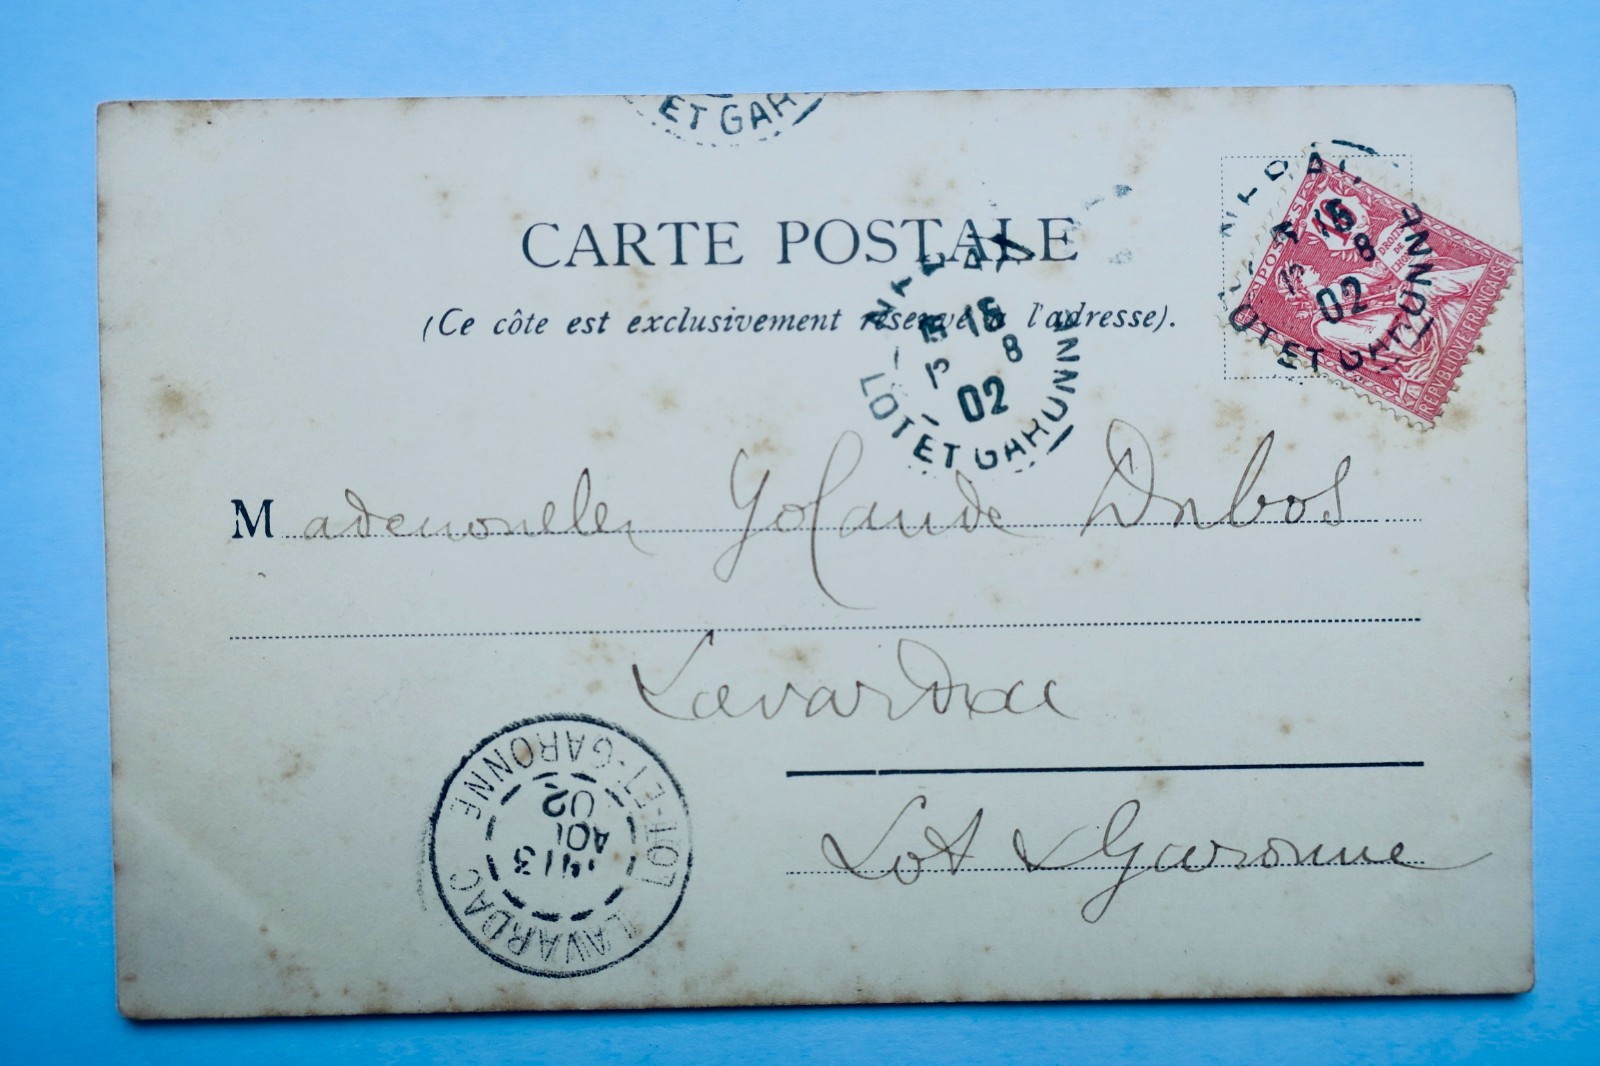 ET GAR
CARTE POSTALE
(Ce côte est exclusivement réservé à l'adresse).
15
8
02
LOT ET GARONNE
POSTES
DROITS DE L'HOMME
REPVBLIQVE FRANÇAISE
16
8
02
LOT ET GARONNE
Mademoiselle Yolande Dubos
Lavardac
Lot & Garonne
LAVARDAC
13
AOUT
02
LOT-ET-GARONNE